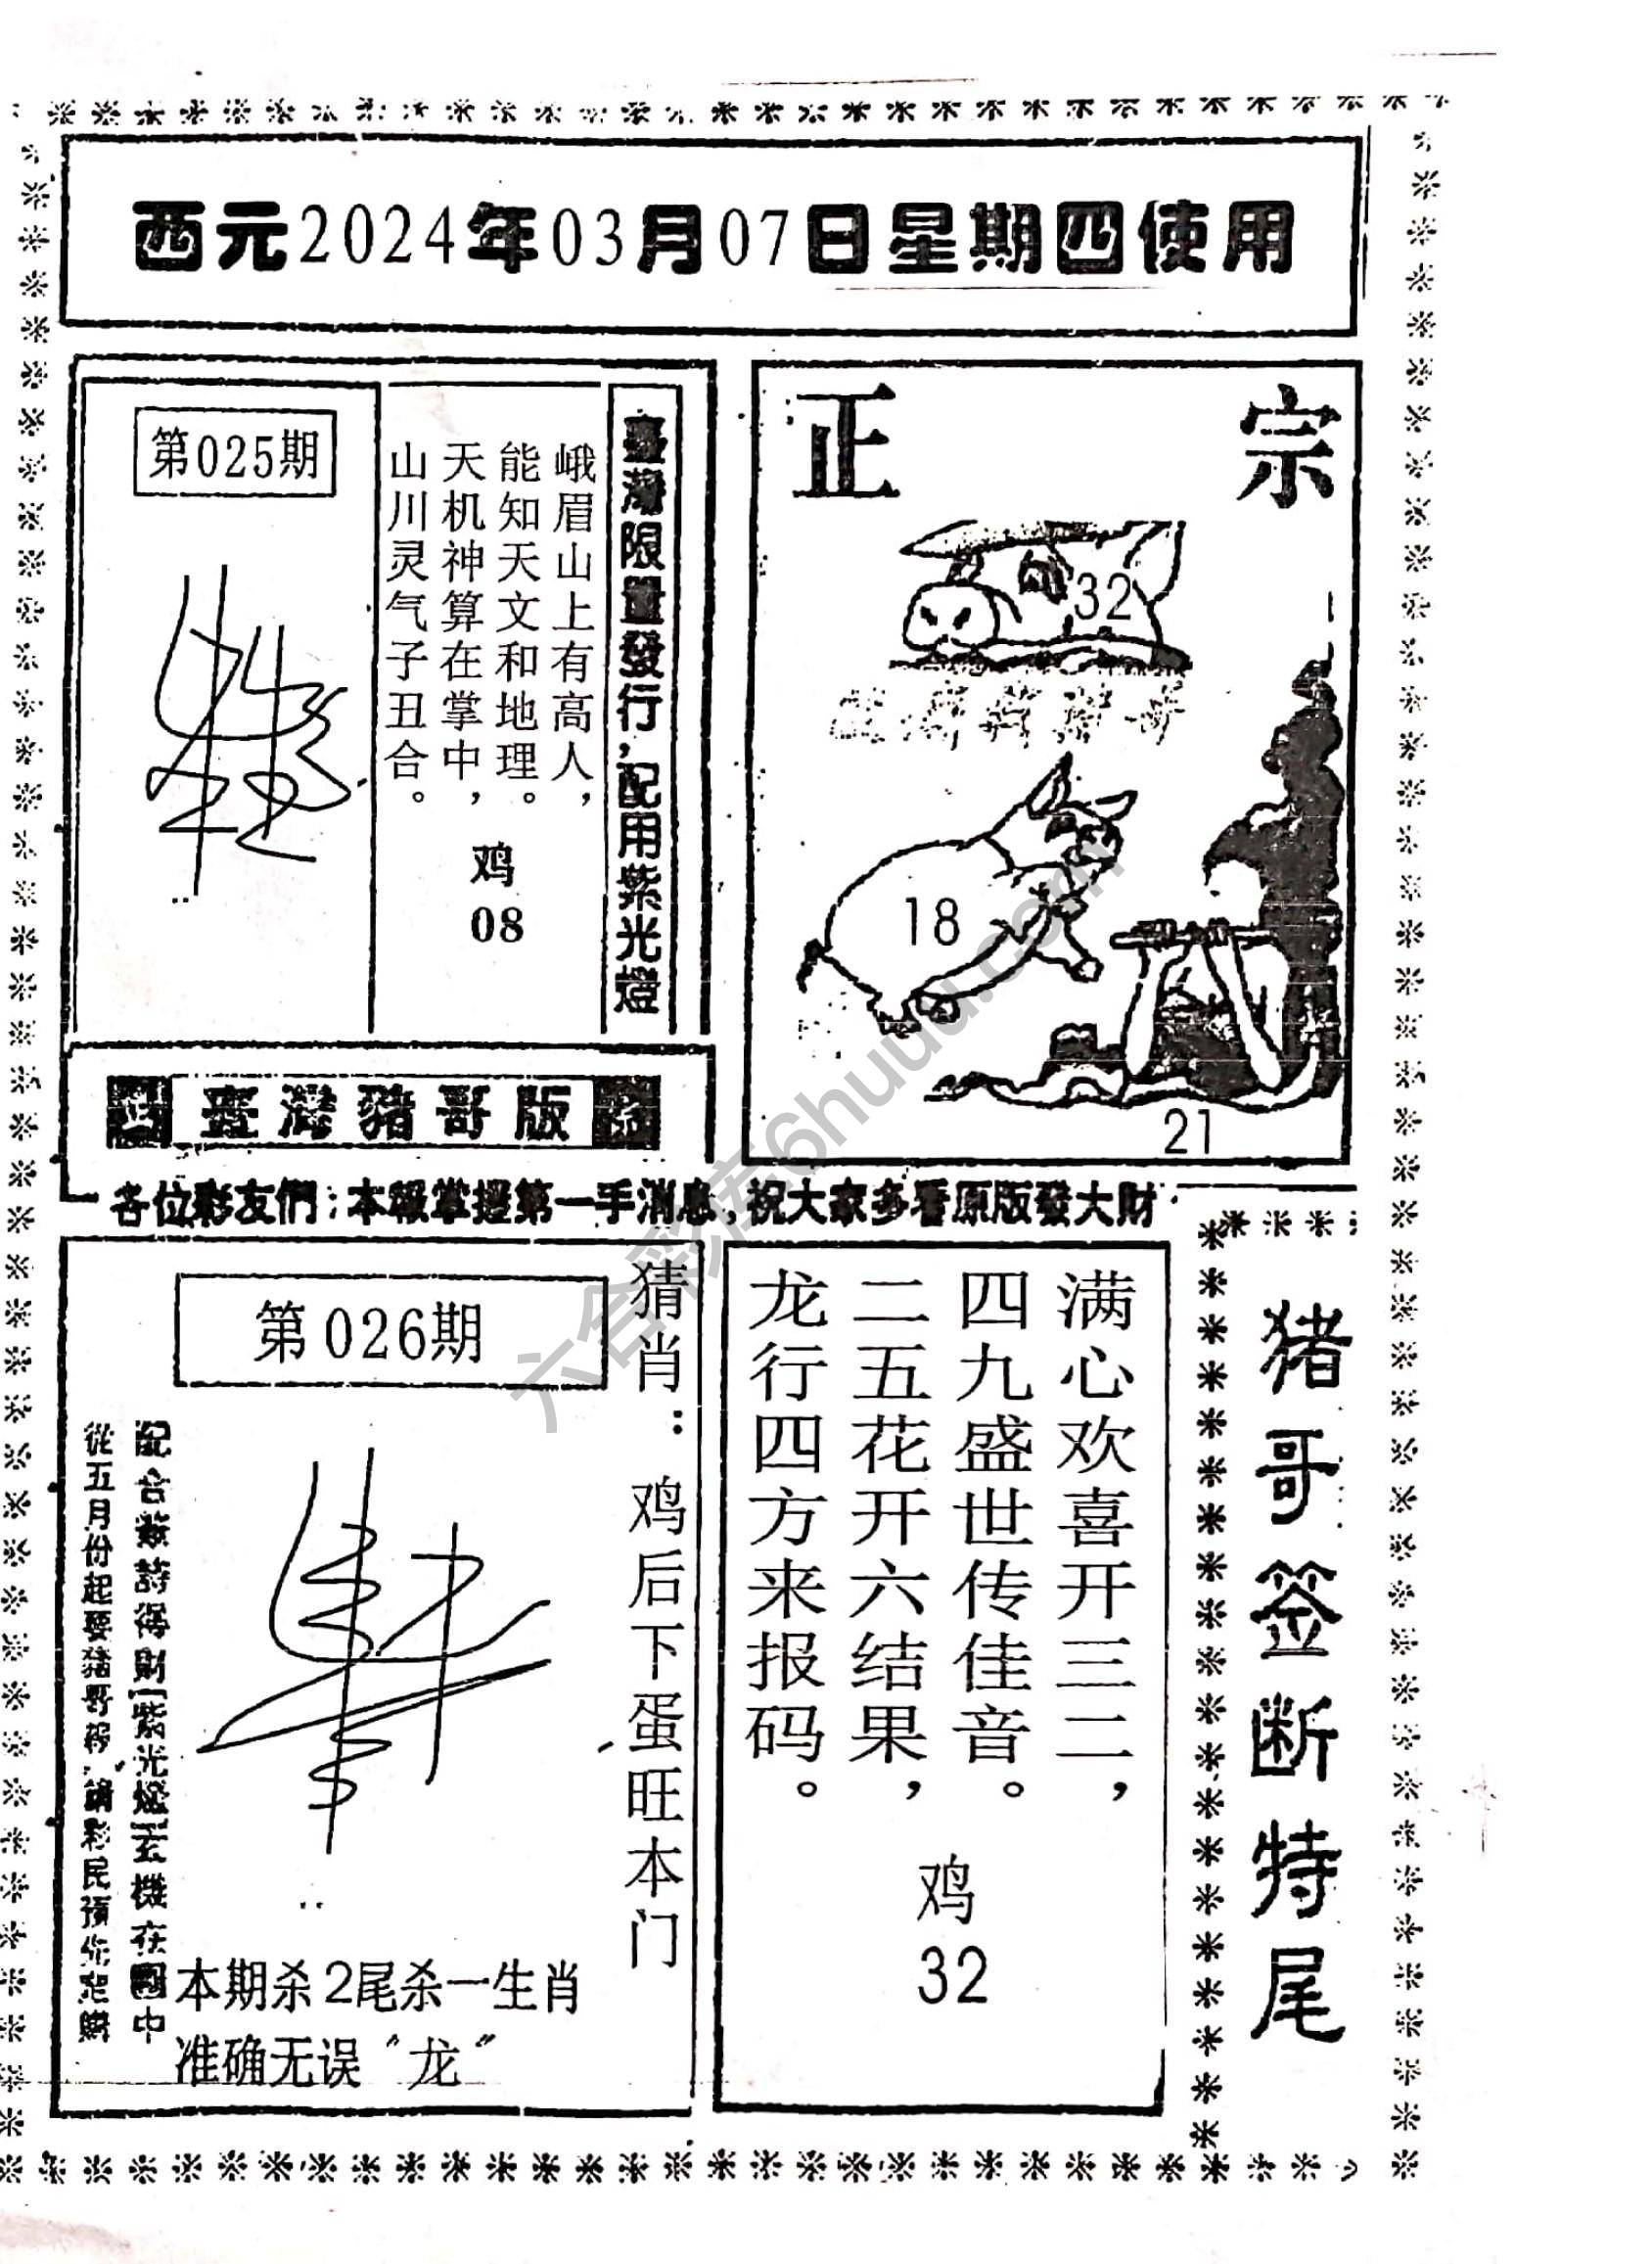 西元2024年03月07日星期四使用
第025期
臺灣限量發行，配用紫光燈
峨眉山上有高人，
能知天文和地理。
天机神算在掌中，
山川灵气子丑合。
鸡
08
正宗
32
18
21
臺灣豬哥版
各位彩友們：本報掌握第一手消息，祝大家多看原版發大財
第026期
猜肖：鸡后下蛋旺本门
配合簽詩得財(紫光燈)玄機在圖中
從五月份起要猪哥
請彩民預
本期杀2尾杀一生肖
准确无误“龙”
满心欢喜开三二，
四九盛世传佳音。
二五花开六结果，
龙行四方来报码。
鸡
32
猪哥签断特尾
六合彩库6huuu.com